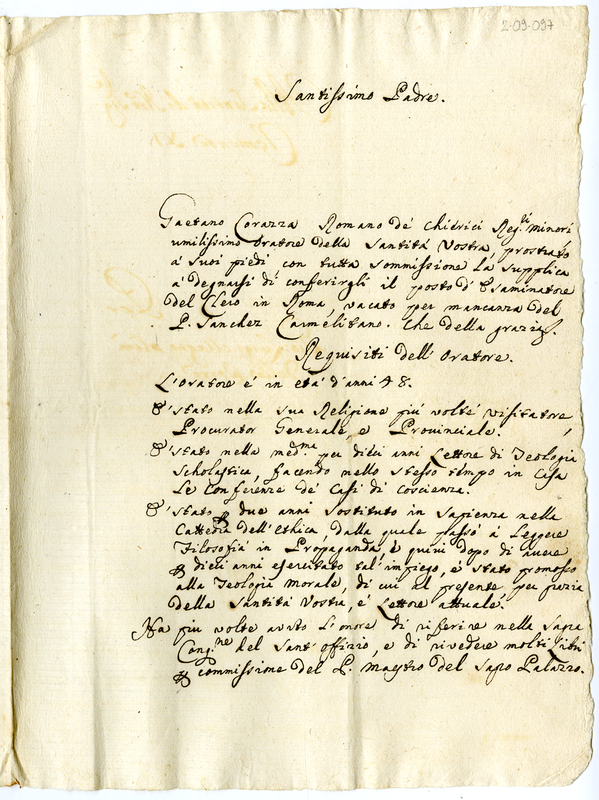 2-09-097
Santissimo Padre.
Gaetano Corazza Romano de' Chierici Reg.ri minori
umilissimo Oratore della Santità Vostra, prostrato
a' suoi piedi con tutta sommissione La supplica
a' degnarsi di conferirgli il posto d' Esaminatore
del Clero in Roma, vacato per mancanza del
P. Sanchez Carmelitano. Che della grazia.
Requisiti dell' Oratore.
L'Oratore é in etá d'anni 48.
E' stato nella sua Religione piú volte Visitatore,
Procurator Generale, e Provinciale.
E' stato nella med.ma per dieci anni Lettore di Teologia
Scholastica, facendo nello stesso tempo in Casa
Le Conferenze de' Casi di Coscienza.
E' stato per due anni Sostituto in Sapienza nella
Cattedra dell'Ethica, dalla quale passó á Leggere
Filosofia in Propaganda, e quivi dopo di avere
per dieci anni esercitato tal' impiego, é stato promosso
alla Teologia Morale, di cui al presente per grazia
della Santitá Vostra, é Lettore attuale.
Ha piu volte avuto L'onore di riferire nella Sagra
Cong.ne del Sant' Offizio, e di rivedere molti Libri
per commissione del P. Maestro del Sagro Palazzo.